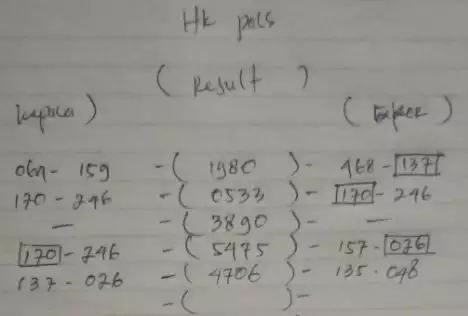 HK pols
( Result )
kepala) (Ekor)
069 - 159 - ( 1980 ) - 468 - 137
170 - 246 - ( 0533 ) - 170 - 246
— - ( 3890 ) - —
170 - 246 - ( 5475 ) - 157 - 026
137 - 026 - ( 4706 ) - 135 - 048
- ( ) -